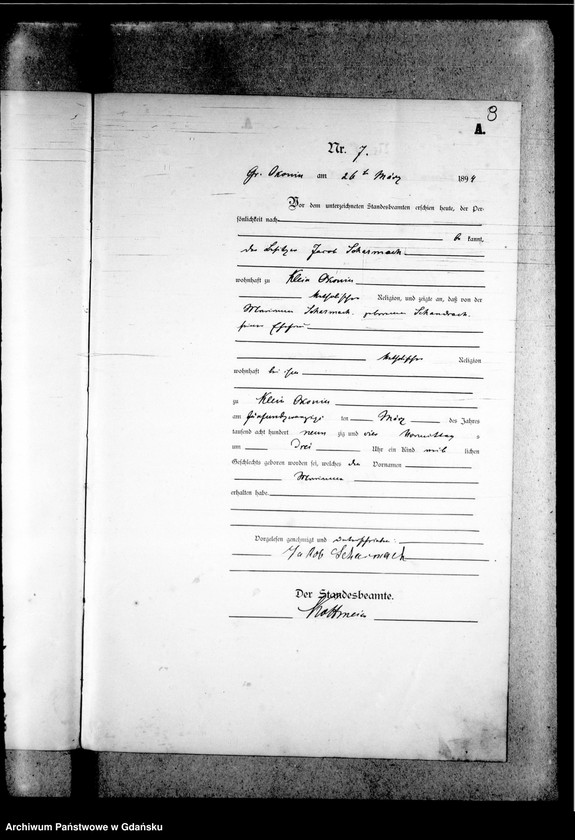 8
A.
Nr. 7.
Gr. Okonin am 26ten März 1894
Vor dem unterzeichneten Standesbeamten erschien heute, der Per-
sönlichkeit nach
be kannt,
der Besitzer Jacob Scharmach
wohnhaft zu Klein Okonin
katholischer Religion, und zeigte an, daß von der
Marianna Scharmach, geborenen
seiner Ehefrau
katholischer Religion
wohnhaft bei ihm
zu Klein Okonin
am fünfundzwanzigsten ten März des Jahres
tausend acht hundert neun zig und vier Vormittag s
um Drei Uhr ein Kind weib lichen
Geschlechts geboren worden sei, welches den Vornamen
Marianna
erhalten habe.
Vorgelesen, genehmigt und unterschrieben
Jakob Scharmach
Der Standesbeamte.
Archiwum Państwowe w Gdańsku